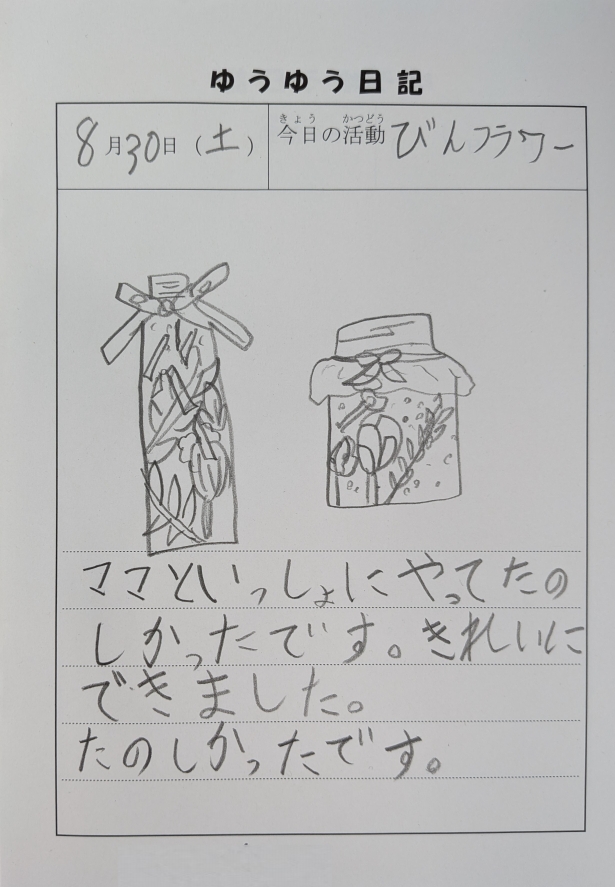 ゆうゆう日記
8月30日（土）
きょう かつどう
今日の活動 びんフラワー
ママといっしょにやってたの
しかったです。きれいに
できました。
たのしかったです。